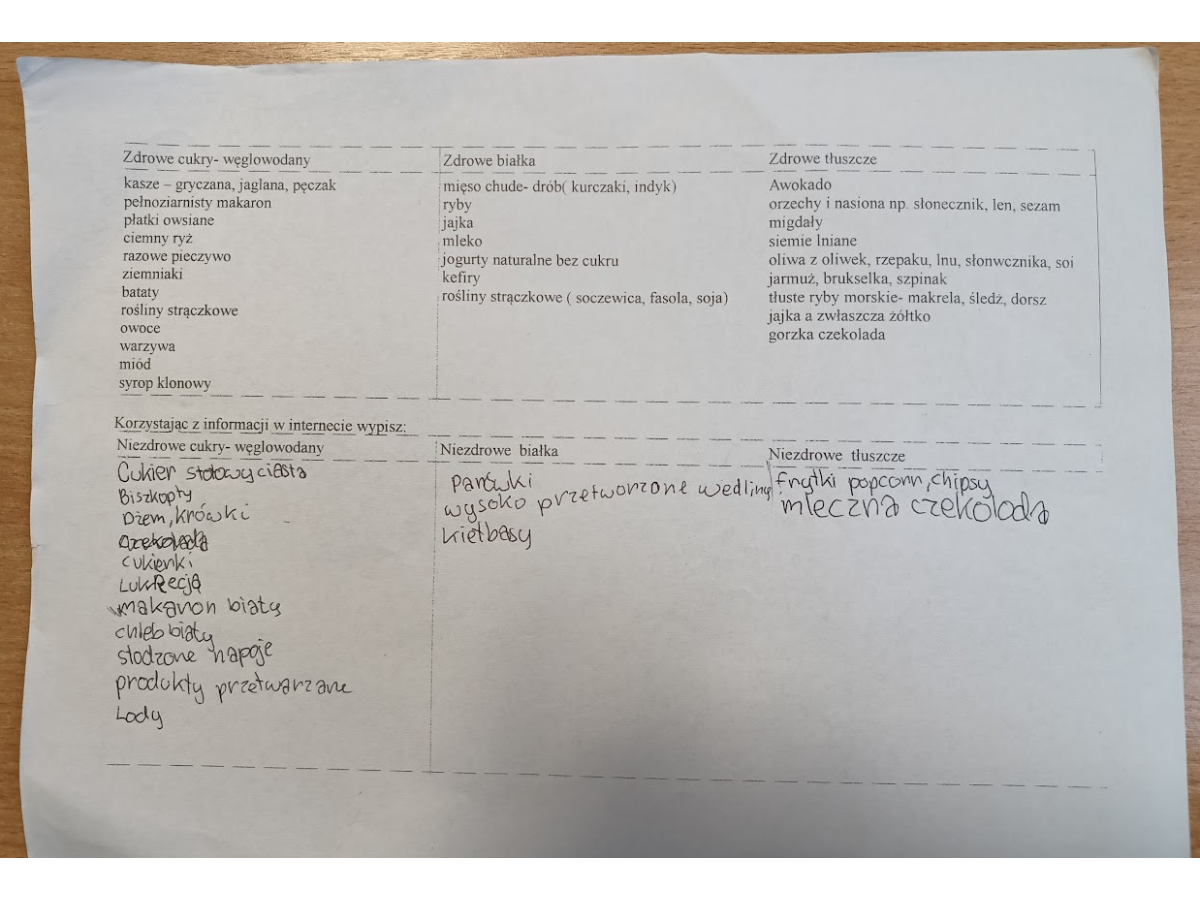 Zdrowe cukry- węglowodany
kasze – gryczana, jaglana, pęczak
pełnoziarnisty makaron
płatki owsiane
ciemny ryż
razowe pieczywo
ziemniaki
bataty
rośliny strączkowe
owoce
warzywa
miód
syrop klonowy
Zdrowe białka
mięso chude- drób( kurczaki, indyk)
ryby
jajka
mleko
jogurty naturalne bez cukru
kefiry
rośliny strączkowe ( soczewica, fasola, soja)
Zdrowe tłuszcze
Awokado
orzechy i nasiona np. słonecznik, len, sezam
migdały
siemie lniane
oliwa z oliwek, rzepaku, lnu, słonwcznika, soi
jarmuż, brukselka, szpinak
tłuste ryby morskie- makrela, śledż, dorsz
jajka a zwłaszcza żółtko
gorzka czekolada
Korzystając z informacji w internecie wypisz:
Niezdrowe cukry- węglowodany
Cukier stołowy ciasta
Biszkopty
Dżem, krówki
czekolada
cukierki
LukRecja
makaron biały
chleb biały
słodzone napoje
produkty przetwarzane
Lody
Niezdrowe białka
parówki
wysoko przetworzone wedliny
kiełbasy
Niezdrowe tłuszcze
frytki popcorn, chipsy
mleczna czekolada